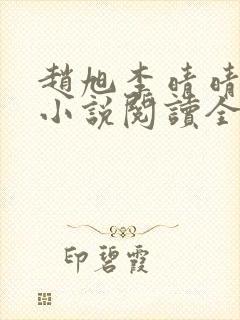 趙旭李晴晴
小說閱讀全
印碧霞